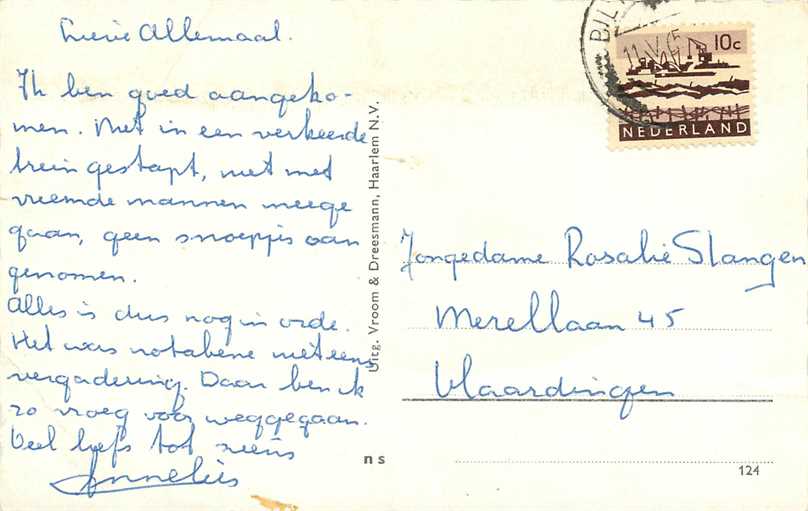 Lieve Allemaal.
Ik ben goed aangeko-
men. Niet in een verkeerde
trein gestapt, niet met
vreemde mannen meege
gaan, geen snoepjes aan
genomen.
Alles is dus nog in orde.
Het was notabene niet eens
vergadering. Daar ben ik
zo vroeg voor weggegaan.
Veel liefs tot ziens
Annelies
Uitg. Vroom & Dreesmann, Haarlem N.V.
n s
10c
NEDERLAND
Jongedame Rosalie Slangen
Merellaan 45
Vlaardingen
124